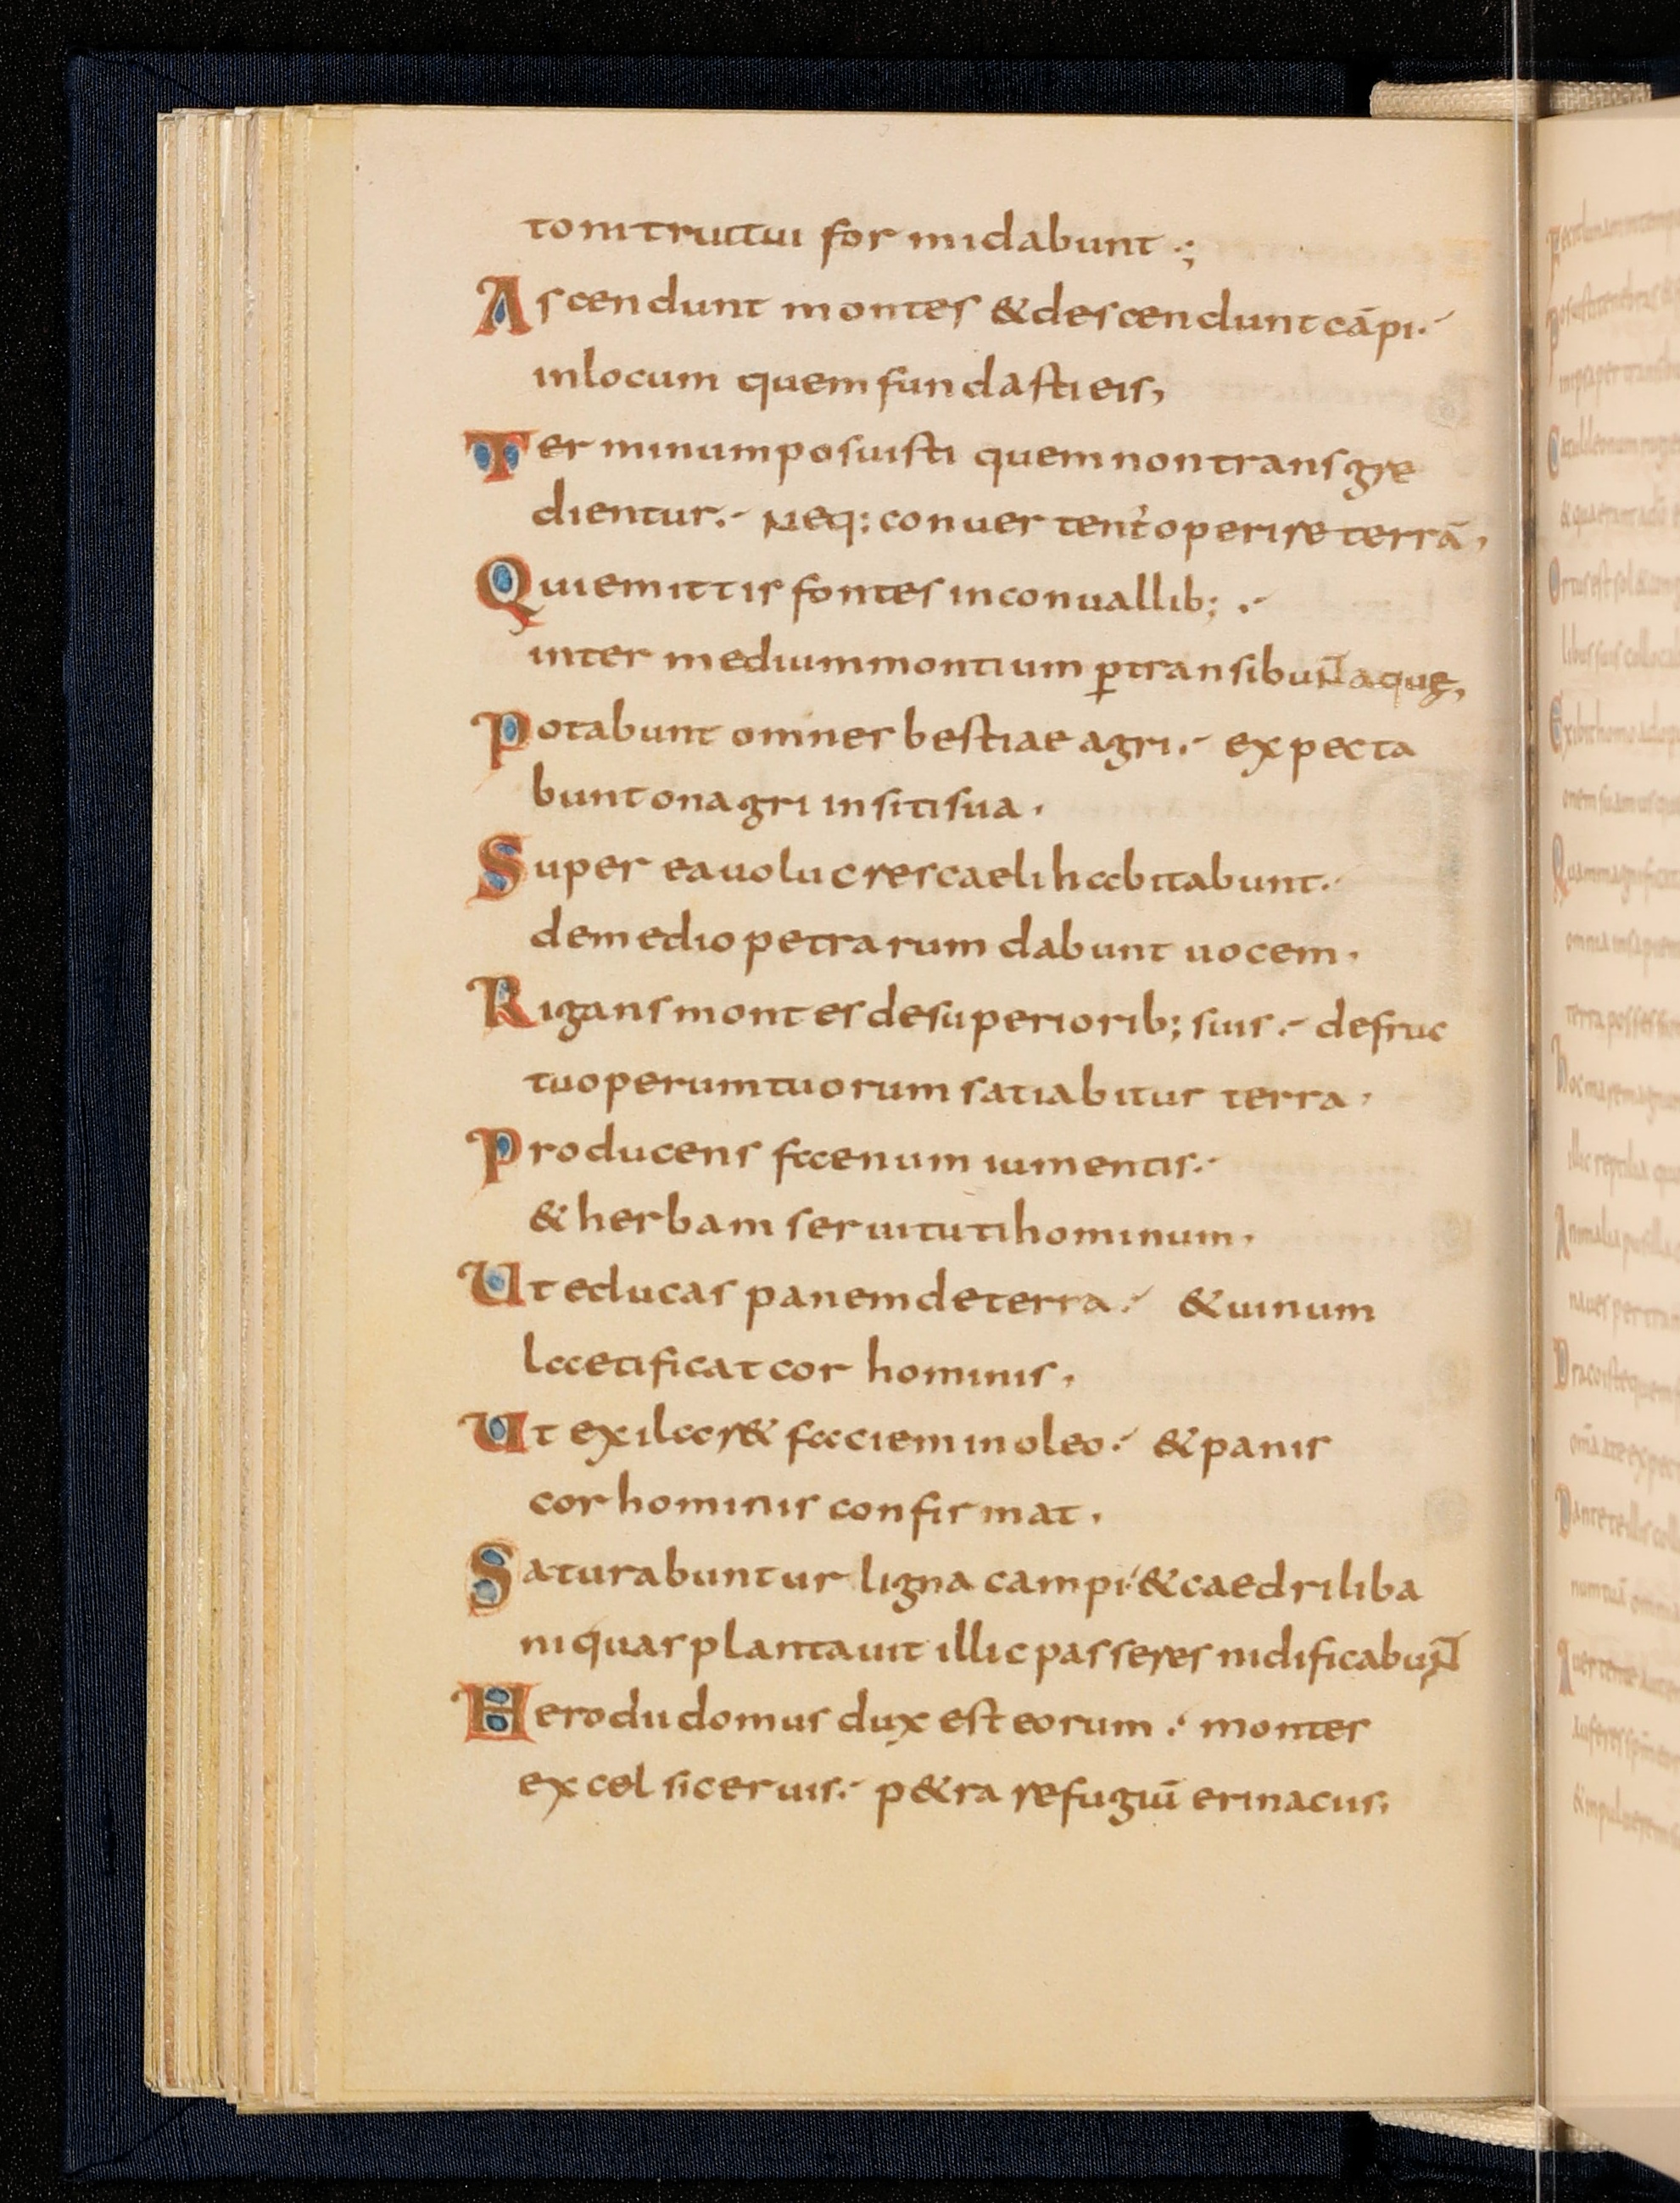 tonitrui tui formidabunt .;
Ascendunt montes & descendunt cāpi.
in locum quem fundasti eis,
Terminum posuisti quem non transgre
dientur. Neq; conuertent operire terrā,
Qui emittis fontes in conuallib; .
inter medium montium ꝑtransibunt aquę,
Potabunt omnes bestiae agri. expecta
bunt onagri in siti sua.
Super ea uolucres caeli habitabunt.
de medio petrarum dabunt uocem.
Rigans montes de superiorib; suis. de fruc
tu operum tuorum satiabitur terra.
Producens faenum iumentis.
& herbam seruituti hominum,
Ut educas panem de terra. & uinum
laetificat cor hominis,
Ut exilares& faciem in oleo. & panis
cor hominis confirmat.
Saturabuntur ligna campi & caedri liba
ni quas plantauit illic passeres nidificabunt
Herodu domus dux est eorum. montes
excelsi ceruis. p&ra refugiū erinacus;